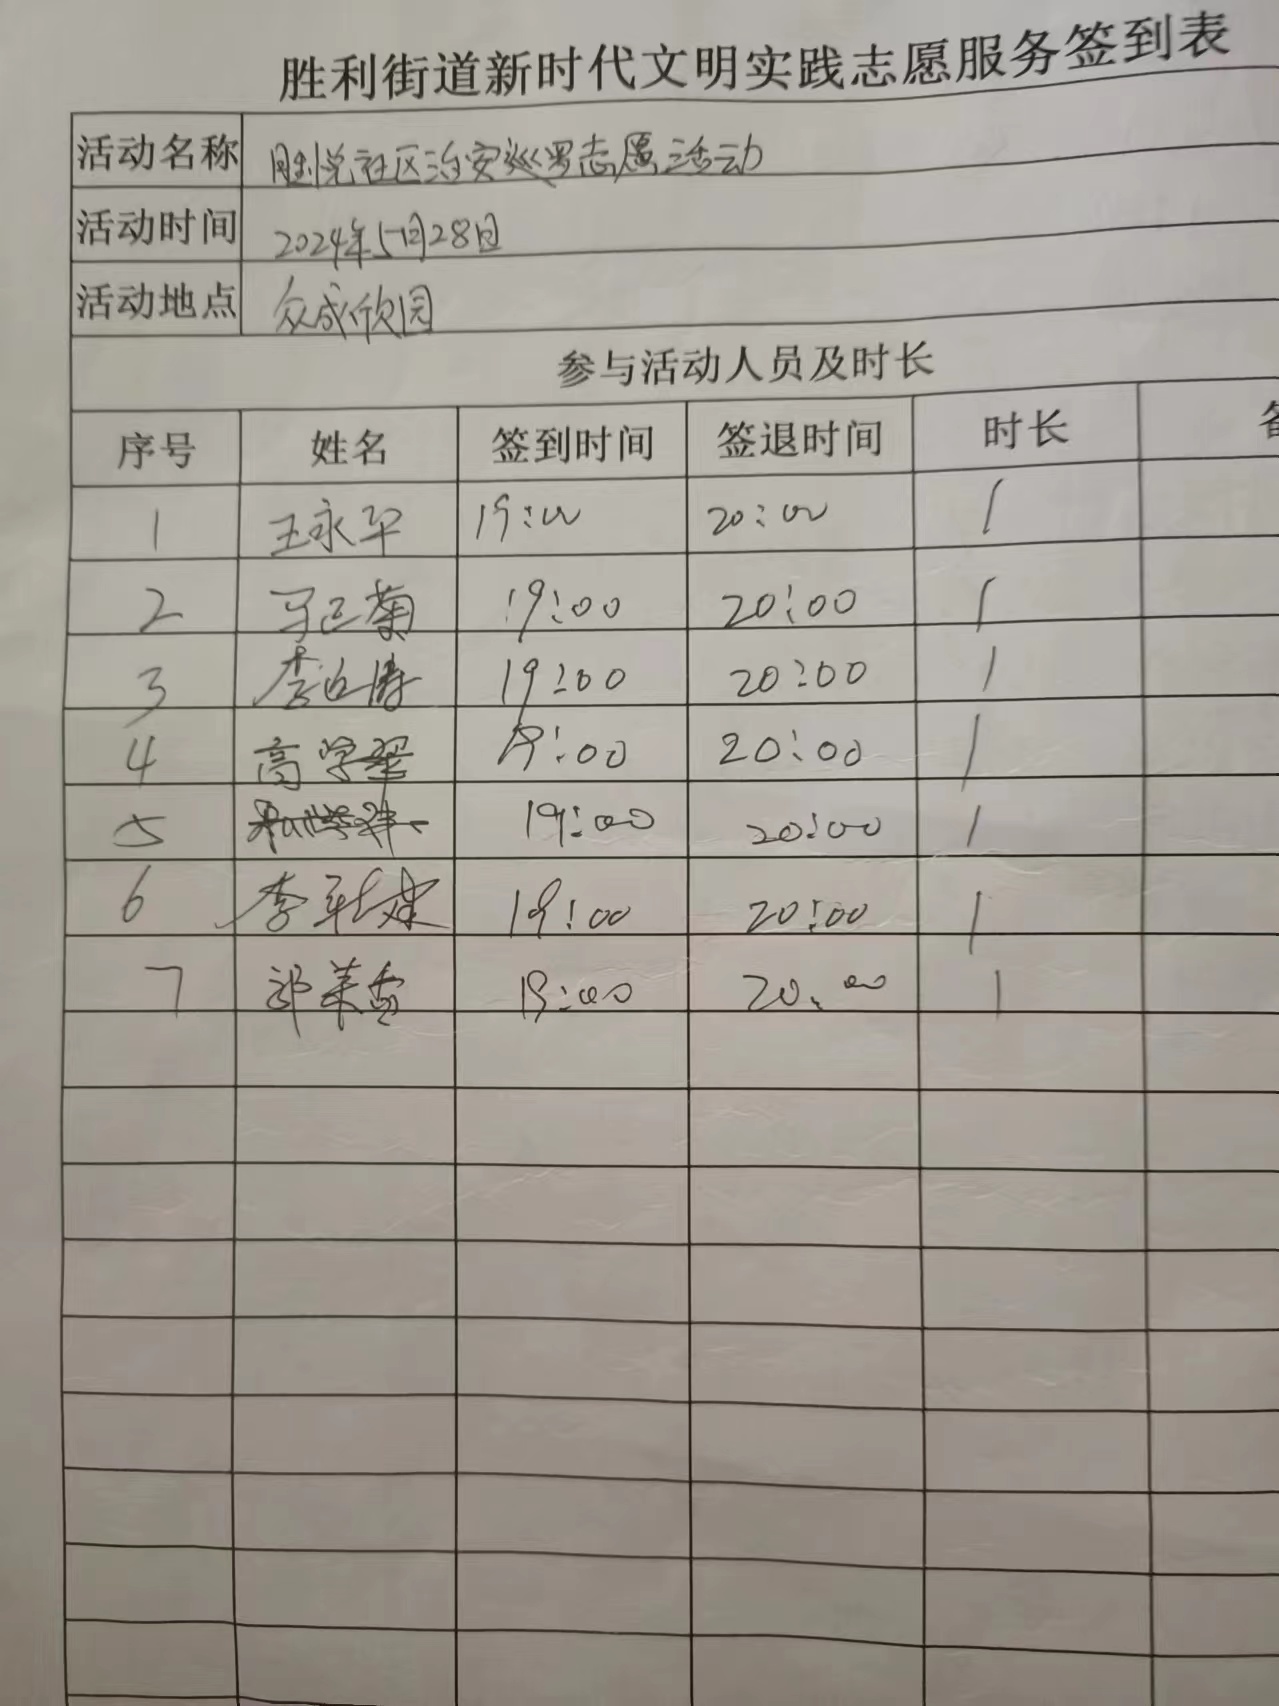 胜利街道新时代文明实践志愿服务签到表
活动名称 胜悦社区治安巡罗志愿活动
活动时间 2024年5月28日
活动地点 众成欣园
参与活动人员及时长
序号 姓名 签到时间 签退时间 时长
1 王永平 19:00 20:00 1
2 马菊 19:00 20:00 1
3 李涛 19:00 20:00 1
4 高学翠 19:00 20:00 1
5 19:00 20:00 1
6 李建 19:00 20:00 1
7 19:00 20:00 1